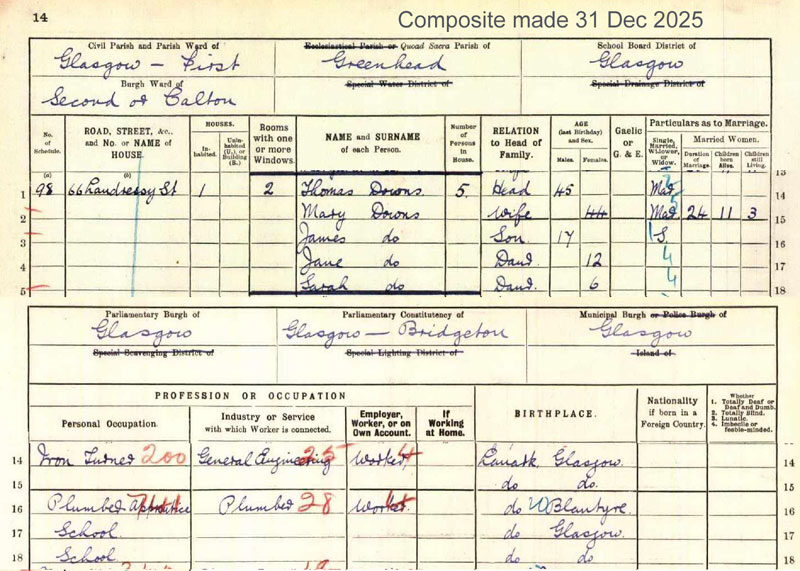 14
Composite made 31 Dec 2025
Civil Parish and Parish Ward of
Glasgow — First
Ecclesiastical Parish or Quoad Sacra Parish of
Greenhead
School Board District of
Glasgow
Burgh Ward of
Second or Calton
Special Water District of
Special Drainage District of
No. of Schedule.
ROAD, STREET, &c., and No. or NAME of HOUSE.
HOUSES.
In-habited.
Unin-habited (U.), or Building (B.).
Rooms with one or more Windows.
NAME and SURNAME of each Person.
Number of Persons in House.
RELATION to Head of Family.
AGE (last Birthday) and Sex.
Males. Females.
Gaelic or G. & E.
Particulars as to Marriage.
Single, Married, Widower, or Widow.
Married Women.
Duration of Marriage.
Children born Alive.
Children still Living.
(a) (b)
13
1 98 66 Landressy St 1 2 Thomas Downs 5. Head 45 Mar 14
2 Mary Downs Wife 44 Mar 24 11 3 15
3 James do Son 17 S. 16
4 Jane do Daur 12 4 17
5 Sarah do Daur. 6 4 18
Parliamentary Burgh of
Glasgow
Parliamentary Constituency of
Glasgow — Bridgeton
Municipal Burgh or Police Burgh of
Glasgow
Special Scavenging District of
Special Lighting District of
Island of
PROFESSION OR OCCUPATION
Personal Occupation.
Industry or Service with which Worker is connected.
Employer, Worker, or on Own Account.
If Working at Home.
BIRTHPLACE.
Nationality if born in a Foreign Country.
Whether
1. Totally Deaf or Deaf and Dumb.
2. Totally Blind.
3. Lunatic.
4. Imbecile or feeble-minded.
14 Iron Turner 200 General Engineering 25 Worker 4 Lanark Glasgow. 14
15 do do. 15
16 Plumber Apprentice Plumber 28 Worker do Blantyre 16
17 School. do Glasgow. 17
18 School. do do 18